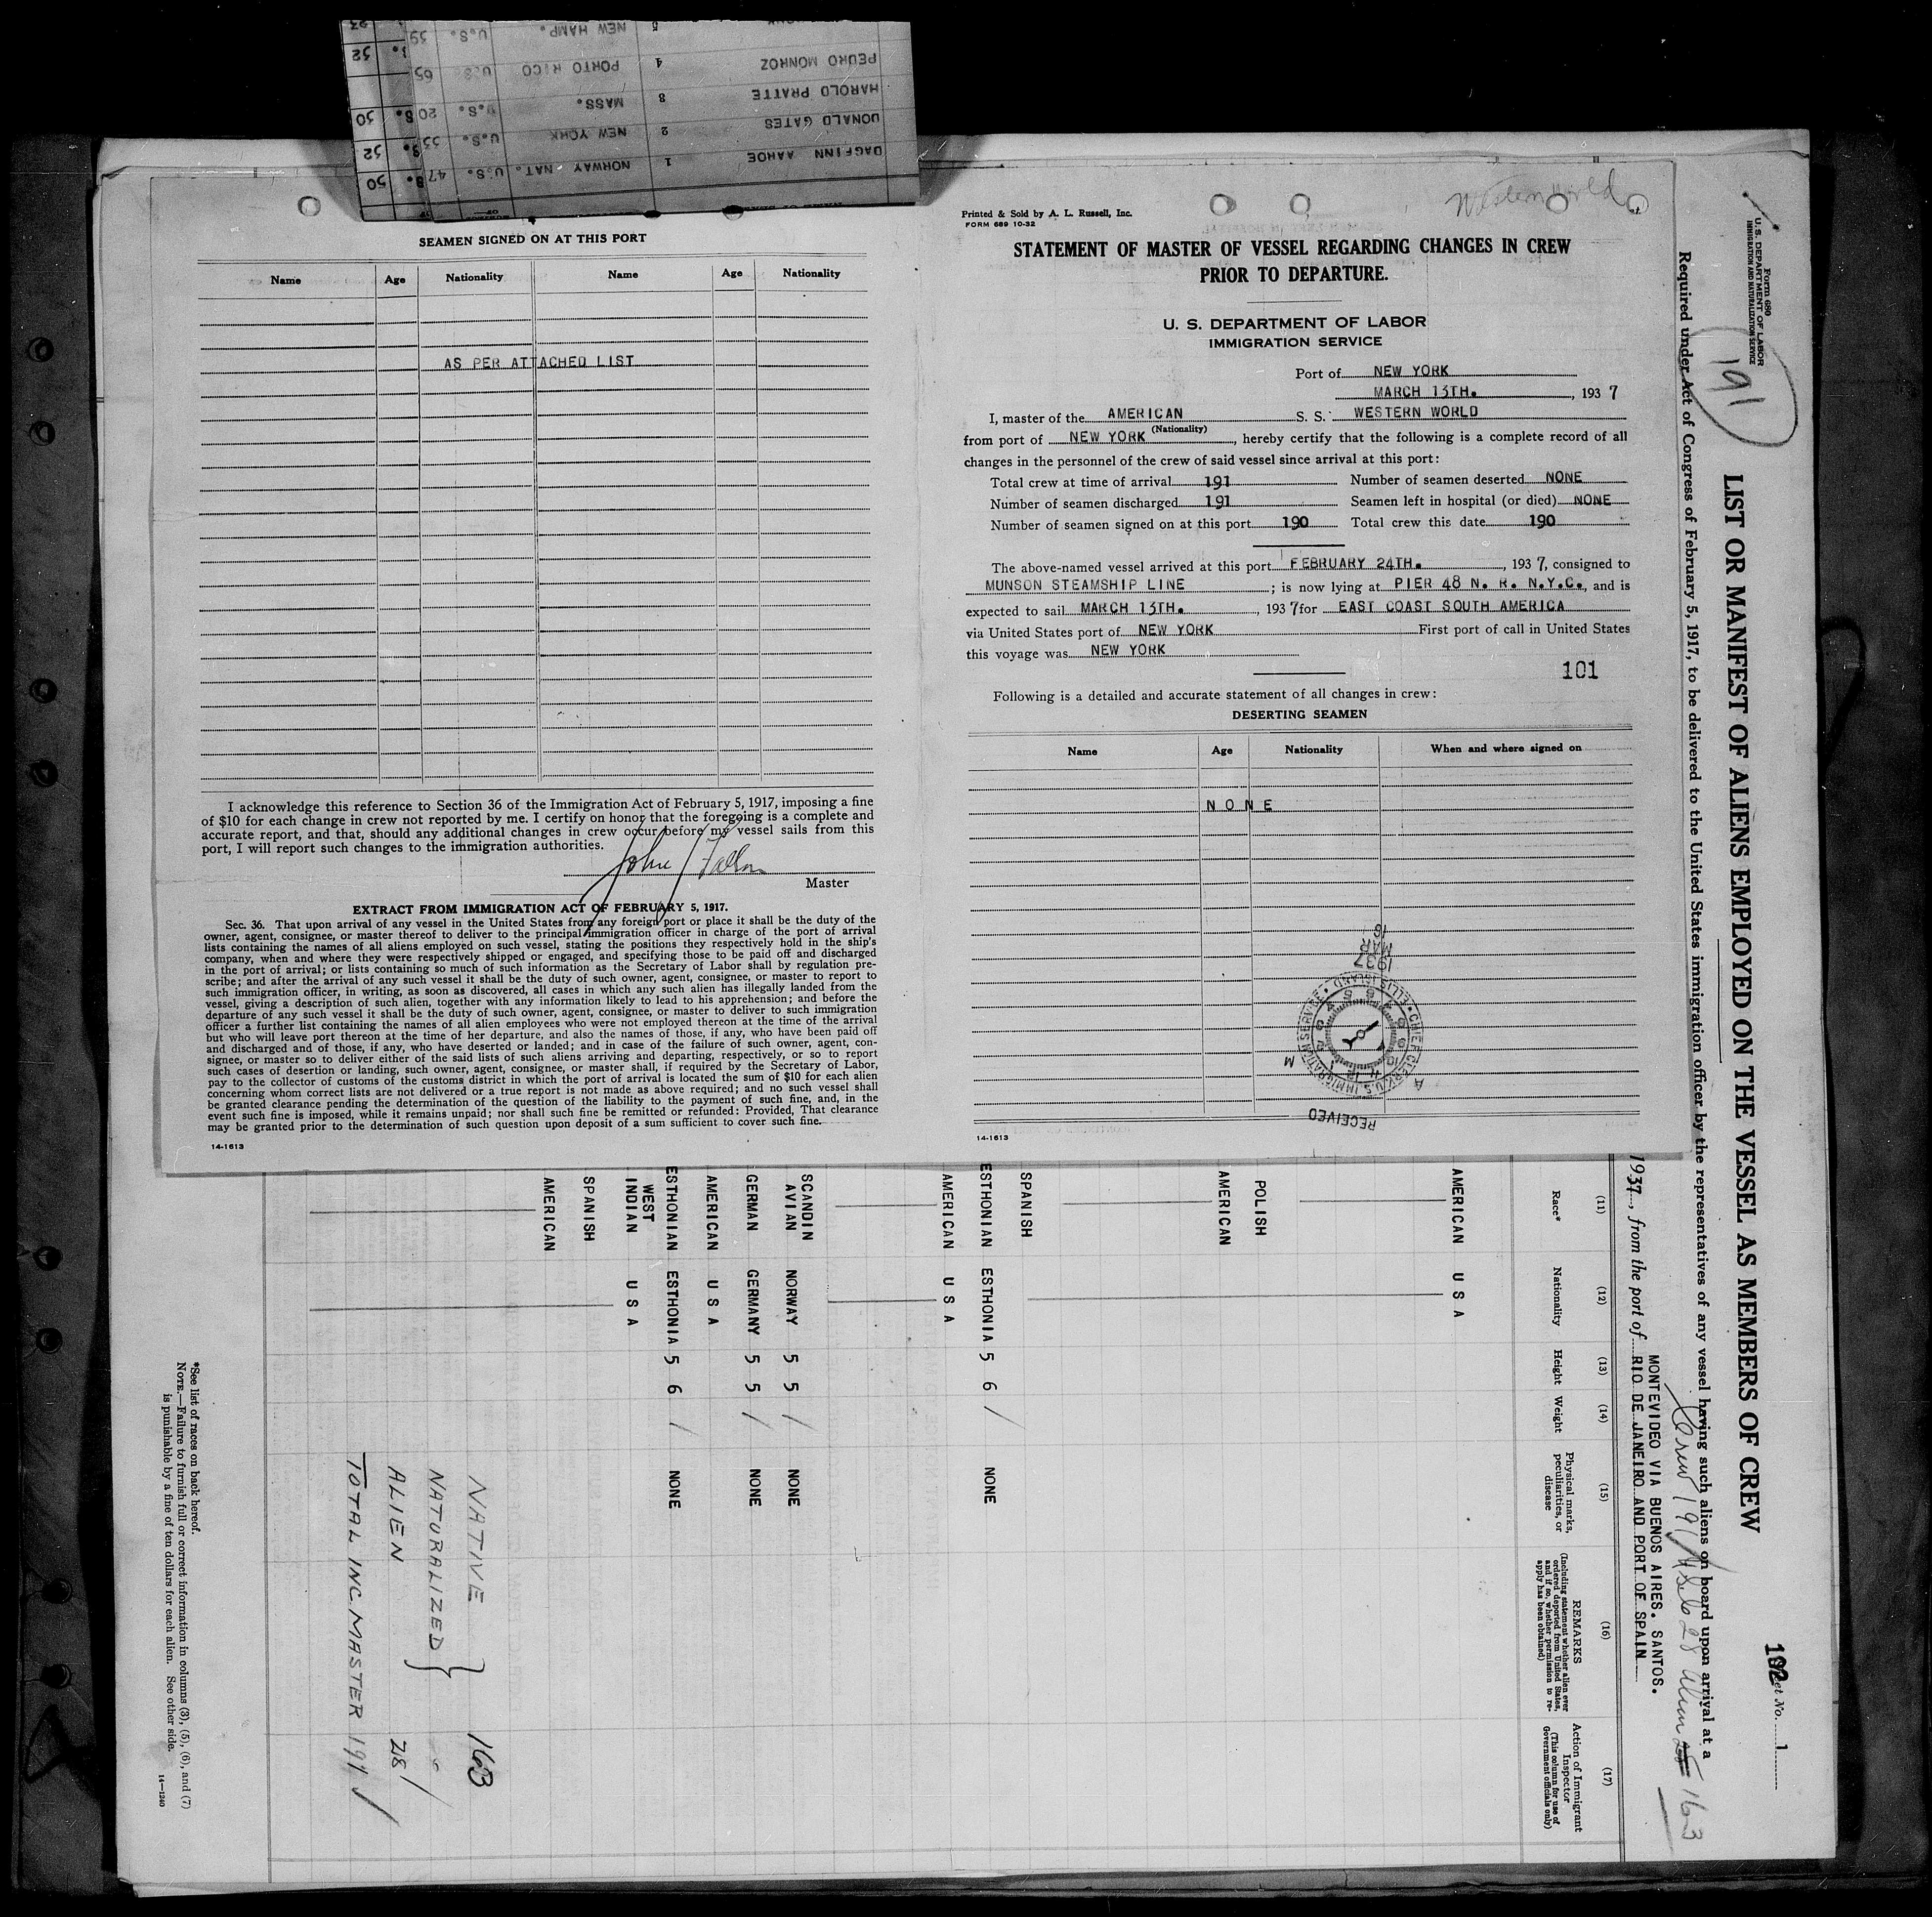 NEW HAMP. U.S. 39
PEDRO MONROZ 4 PORTO RICO U.S. 65
HAROLD PRATTE 8 MASS. U.S. 20
DONALD GATES 2 NEW YORK U.S. 33
DAGFINN AAHOE 1 NORWAY NAT. U.S. 47
SEAMEN SIGNED ON AT THIS PORT
Name Age Nationality Name Age Nationality
AS PER ATTACHED LIST
I acknowledge this reference to Section 36 of the Immigration Act of February 5, 1917, imposing a fine
of $10 for each change in crew not reported by me. I certify on honor that the foregoing is a complete and
accurate report, and that, should any additional changes in crew occur before my vessel sails from this
port, I will report such changes to the immigration authorities.
John J Fallon
Master
EXTRACT FROM IMMIGRATION ACT OF FEBRUARY 5, 1917.
Sec. 36. That upon arrival of any vessel in the United States from any foreign port or place it shall be the duty of the
owner, agent, consignee, or master thereof to deliver to the principal immigration officer in charge of the port of arrival
lists containing the names of all aliens employed on such vessel, stating the positions they respectively hold in the ship's
company, when and where they were respectively shipped or engaged, and specifying those to be paid off and discharged
in the port of arrival; or lists containing so much of such information as the Secretary of Labor shall by regulation pre-
scribe; and after the arrival of any such vessel it shall be the duty of such owner, agent, consignee, or master to report to
such immigration officer, in writing, as soon as discovered, all cases in which any such alien has illegally landed from the
vessel, giving a description of such alien, together with any information likely to lead to his apprehension; and before the
departure of any such vessel it shall be the duty of such owner, agent, consignee, or master to deliver to such immigration
officer a further list containing the names of all alien employees who were not employed thereon at the time of the arrival
but who will leave port thereon at the time of her departure, and also the names of those, if any, who have been paid off
and discharged and of those, if any, who have deserted or landed; and in case of the failure of such owner, agent, con-
signee, or master so to deliver either of the said lists of such aliens arriving and departing, respectively, or so to report
such cases of desertion or landing, such owner, agent, consignee, or master shall, if required by the Secretary of Labor,
pay to the collector of customs of the customs district in which the port of arrival is located the sum of $10 for each alien
concerning whom correct lists are not delivered or a true report is not made as above required; and no such vessel shall
be granted clearance pending the determination of the question of the liability to the payment of such fine, and, in the
event such fine is imposed, while it remains unpaid; nor shall such fine be remitted or refunded: Provided, That clearance
may be granted prior to the determination of such question upon deposit of a sum sufficient to cover such fine.
14-1613
Western World
Printed & Sold by A. L. Russell, Inc.
FORM 689 10-32
STATEMENT OF MASTER OF VESSEL REGARDING CHANGES IN CREW
PRIOR TO DEPARTURE.
U. S. DEPARTMENT OF LABOR
IMMIGRATION SERVICE
Port of NEW YORK
MARCH 13TH. , 1937
I, master of the AMERICAN S. S. WESTERN WORLD
(Nationality)
from port of NEW YORK , hereby certify that the following is a complete record of all
changes in the personnel of the crew of said vessel since arrival at this port:
Total crew at time of arrival 191 Number of seamen deserted NONE
Number of seamen discharged 191 Seamen left in hospital (or died) NONE
Number of seamen signed on at this port 190 Total crew this date 190
The above-named vessel arrived at this port FEBRUARY 24TH. , 1937, consigned to
MUNSON STEAMSHIP LINE ; is now lying at PIER 48 N. R. N.Y.C., and is
expected to sail MARCH 13TH. , 1937 for EAST COAST SOUTH AMERICA
via United States port of NEW YORK First port of call in United States
this voyage was NEW YORK
101
Following is a detailed and accurate statement of all changes in crew:
DESERTING SEAMEN
Name Age Nationality When and where signed on
NONE
RECEIVED
CHIEF CLERK, U.S. IMMIGRATION SERVICE ELLIS ISLAND
1937
MAR
16
A M
14-1613
Form 680
U.S. DEPARTMENT OF LABOR
IMMIGRATION AND NATURALIZATION SERVICE
191
102
Sheet No. 1
LIST OR MANIFEST OF ALIENS EMPLOYED ON THE VESSEL AS MEMBERS OF CREW
Required under Act of Congress of February 5, 1917, to be delivered to the United States immigration officer by the representatives of any vessel having such aliens on board upon arrival at a
Crew 191 163
MONTEVIDEO VIA BUENOS AIRES. SANTOS.
1937, from the port of RIO DE JANEIRO AND PORT OF SPAIN
(11) (12) (13) (14) (15) (16) (17)
Race* Nationality Height Weight Physical marks, peculiarities, or disease
REMARKS
(Including statement whether alien ever ordered deported from United States, and if so, whether permission to re-apply has been obtained)
Action of Immigrant Inspector
(This column for use of Government officials only)
AMERICAN U S A
POLISH
AMERICAN
SPANISH
ESTHONIAN ESTHONIA 5 6 NONE
AMERICAN U S A
SCANDIN
AVIAN NORWAY 5 5 NONE
GERMAN GERMANY 5 5 NONE
AMERICAN U S A
ESTHONIAN ESTHONIA 5 6 NONE
WEST
INDIAN U S A
SPANISH
AMERICAN
NATIVE 163
NATURALIZED "
ALIEN 28
TOTAL INC. MASTER 191
*See list of races on back hereof.
NOTE.—Failure to furnish full or correct information in columns (3), (5), (6), and (7)
is punishable by a fine of ten dollars for each alien. See other side.
14—1240